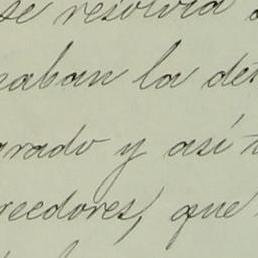 se resolvia
eaban la de
arado y así
reedores, que